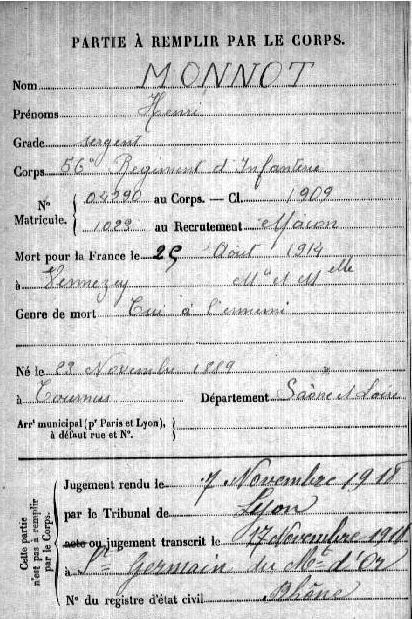 PARTIE À REMPLIR PAR LE CORPS.
Nom MONNOT
Prénoms Henri
Grade sergent
Corps 56e Régiment d'Infanterie
N° Matricule. { 04290 au Corps. — Cl. 1909
1099 au Recrutement Macon
Mort pour la France le 25 Août 1914
à Vennezey Mthe et Mlle
Genre de mort Tué à l'ennemi
Né le 29 Novembre 1889
à Tournus Département Saône et Loire
Arrt municipal (pr Paris et Lyon), à défaut rue et N°.
Cette partie n'est pas à remplir par le Corps.
Jugement rendu le 7 Novembre 1918
par le Tribunal de Lyon
acte ou jugement transcrit le 17 Novembre 1918
à St Germain du Mt d'Or
N° du registre d'état civil Rhône